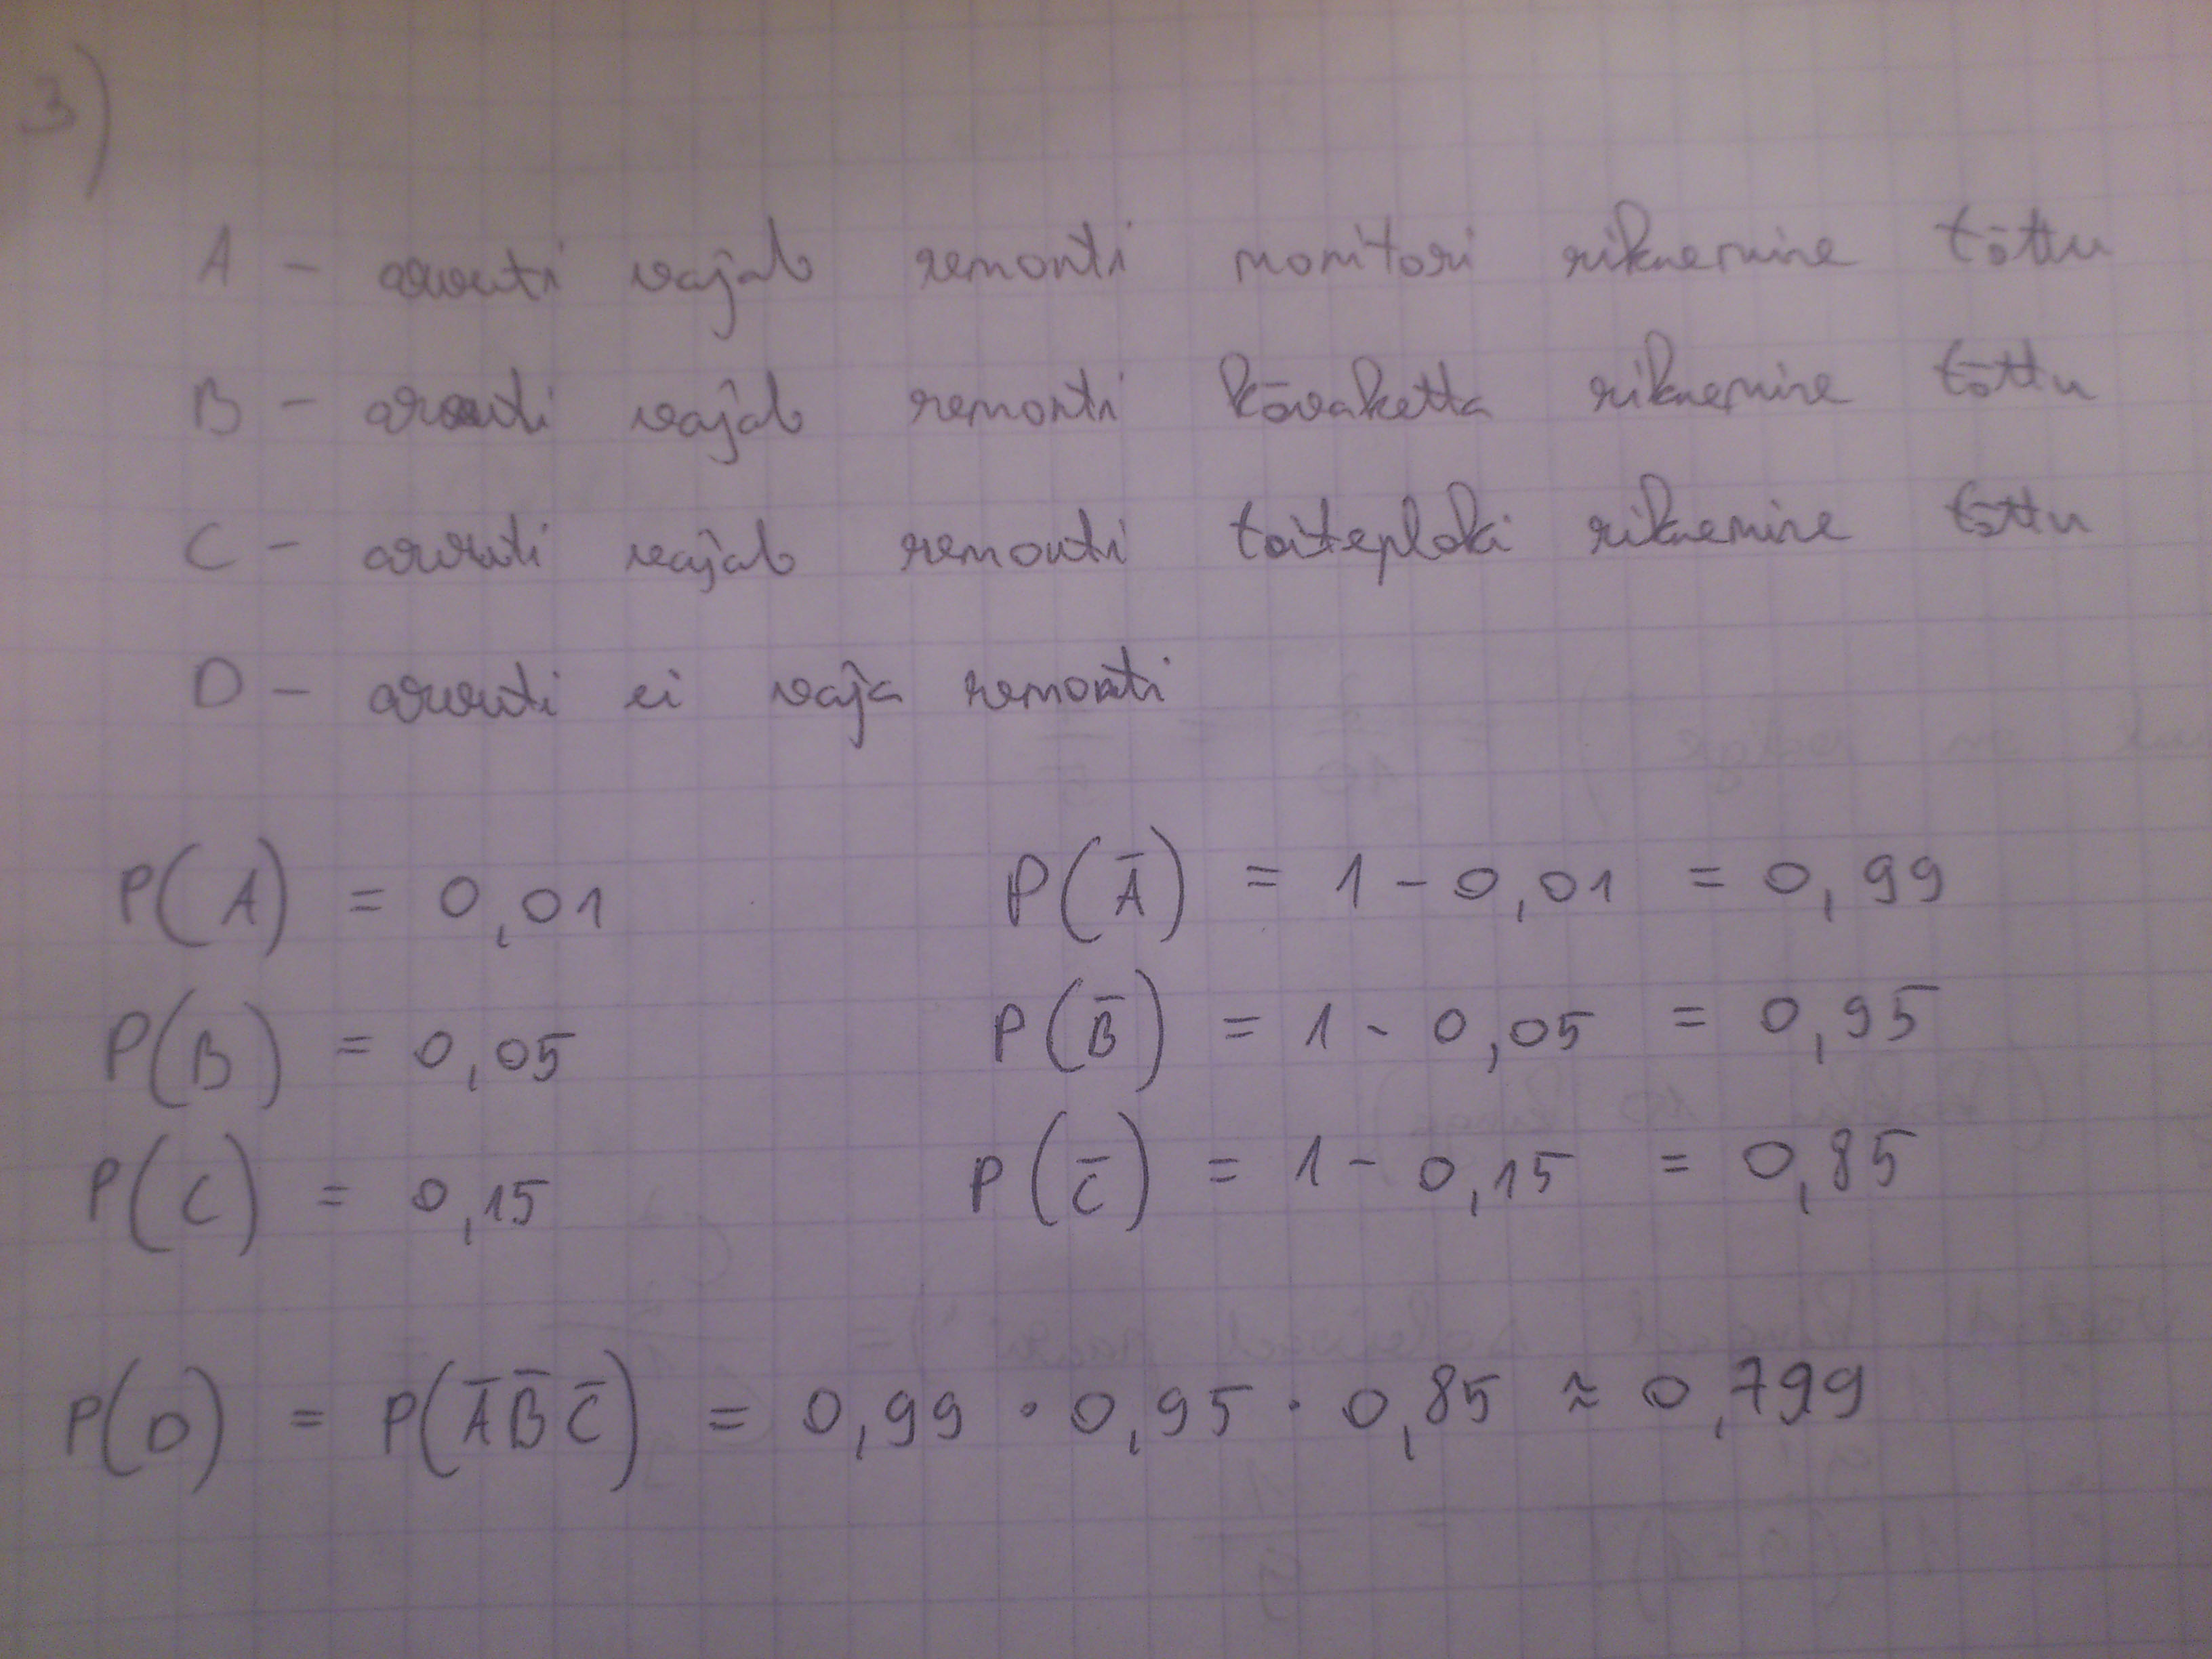 3)
A - arvuti vajab remonti monitori riknemine tõttu
B - arvuti vajab remonti kõvaketta riknemine tõttu
C - arvuti vajab remonti toiteploki riknemine tõttu
D - arvuti ei vaja remonti
P(A) = 0,01 P(A̅) = 1 - 0,01 = 0,99
P(B) = 0,05 P(B̅) = 1 - 0,05 = 0,95
P(C) = 0,15 P(C̅) = 1 - 0,15 = 0,85
P(D) = P(A̅ B̅ C̅) = 0,99 · 0,95 · 0,85 ≈ 0,799